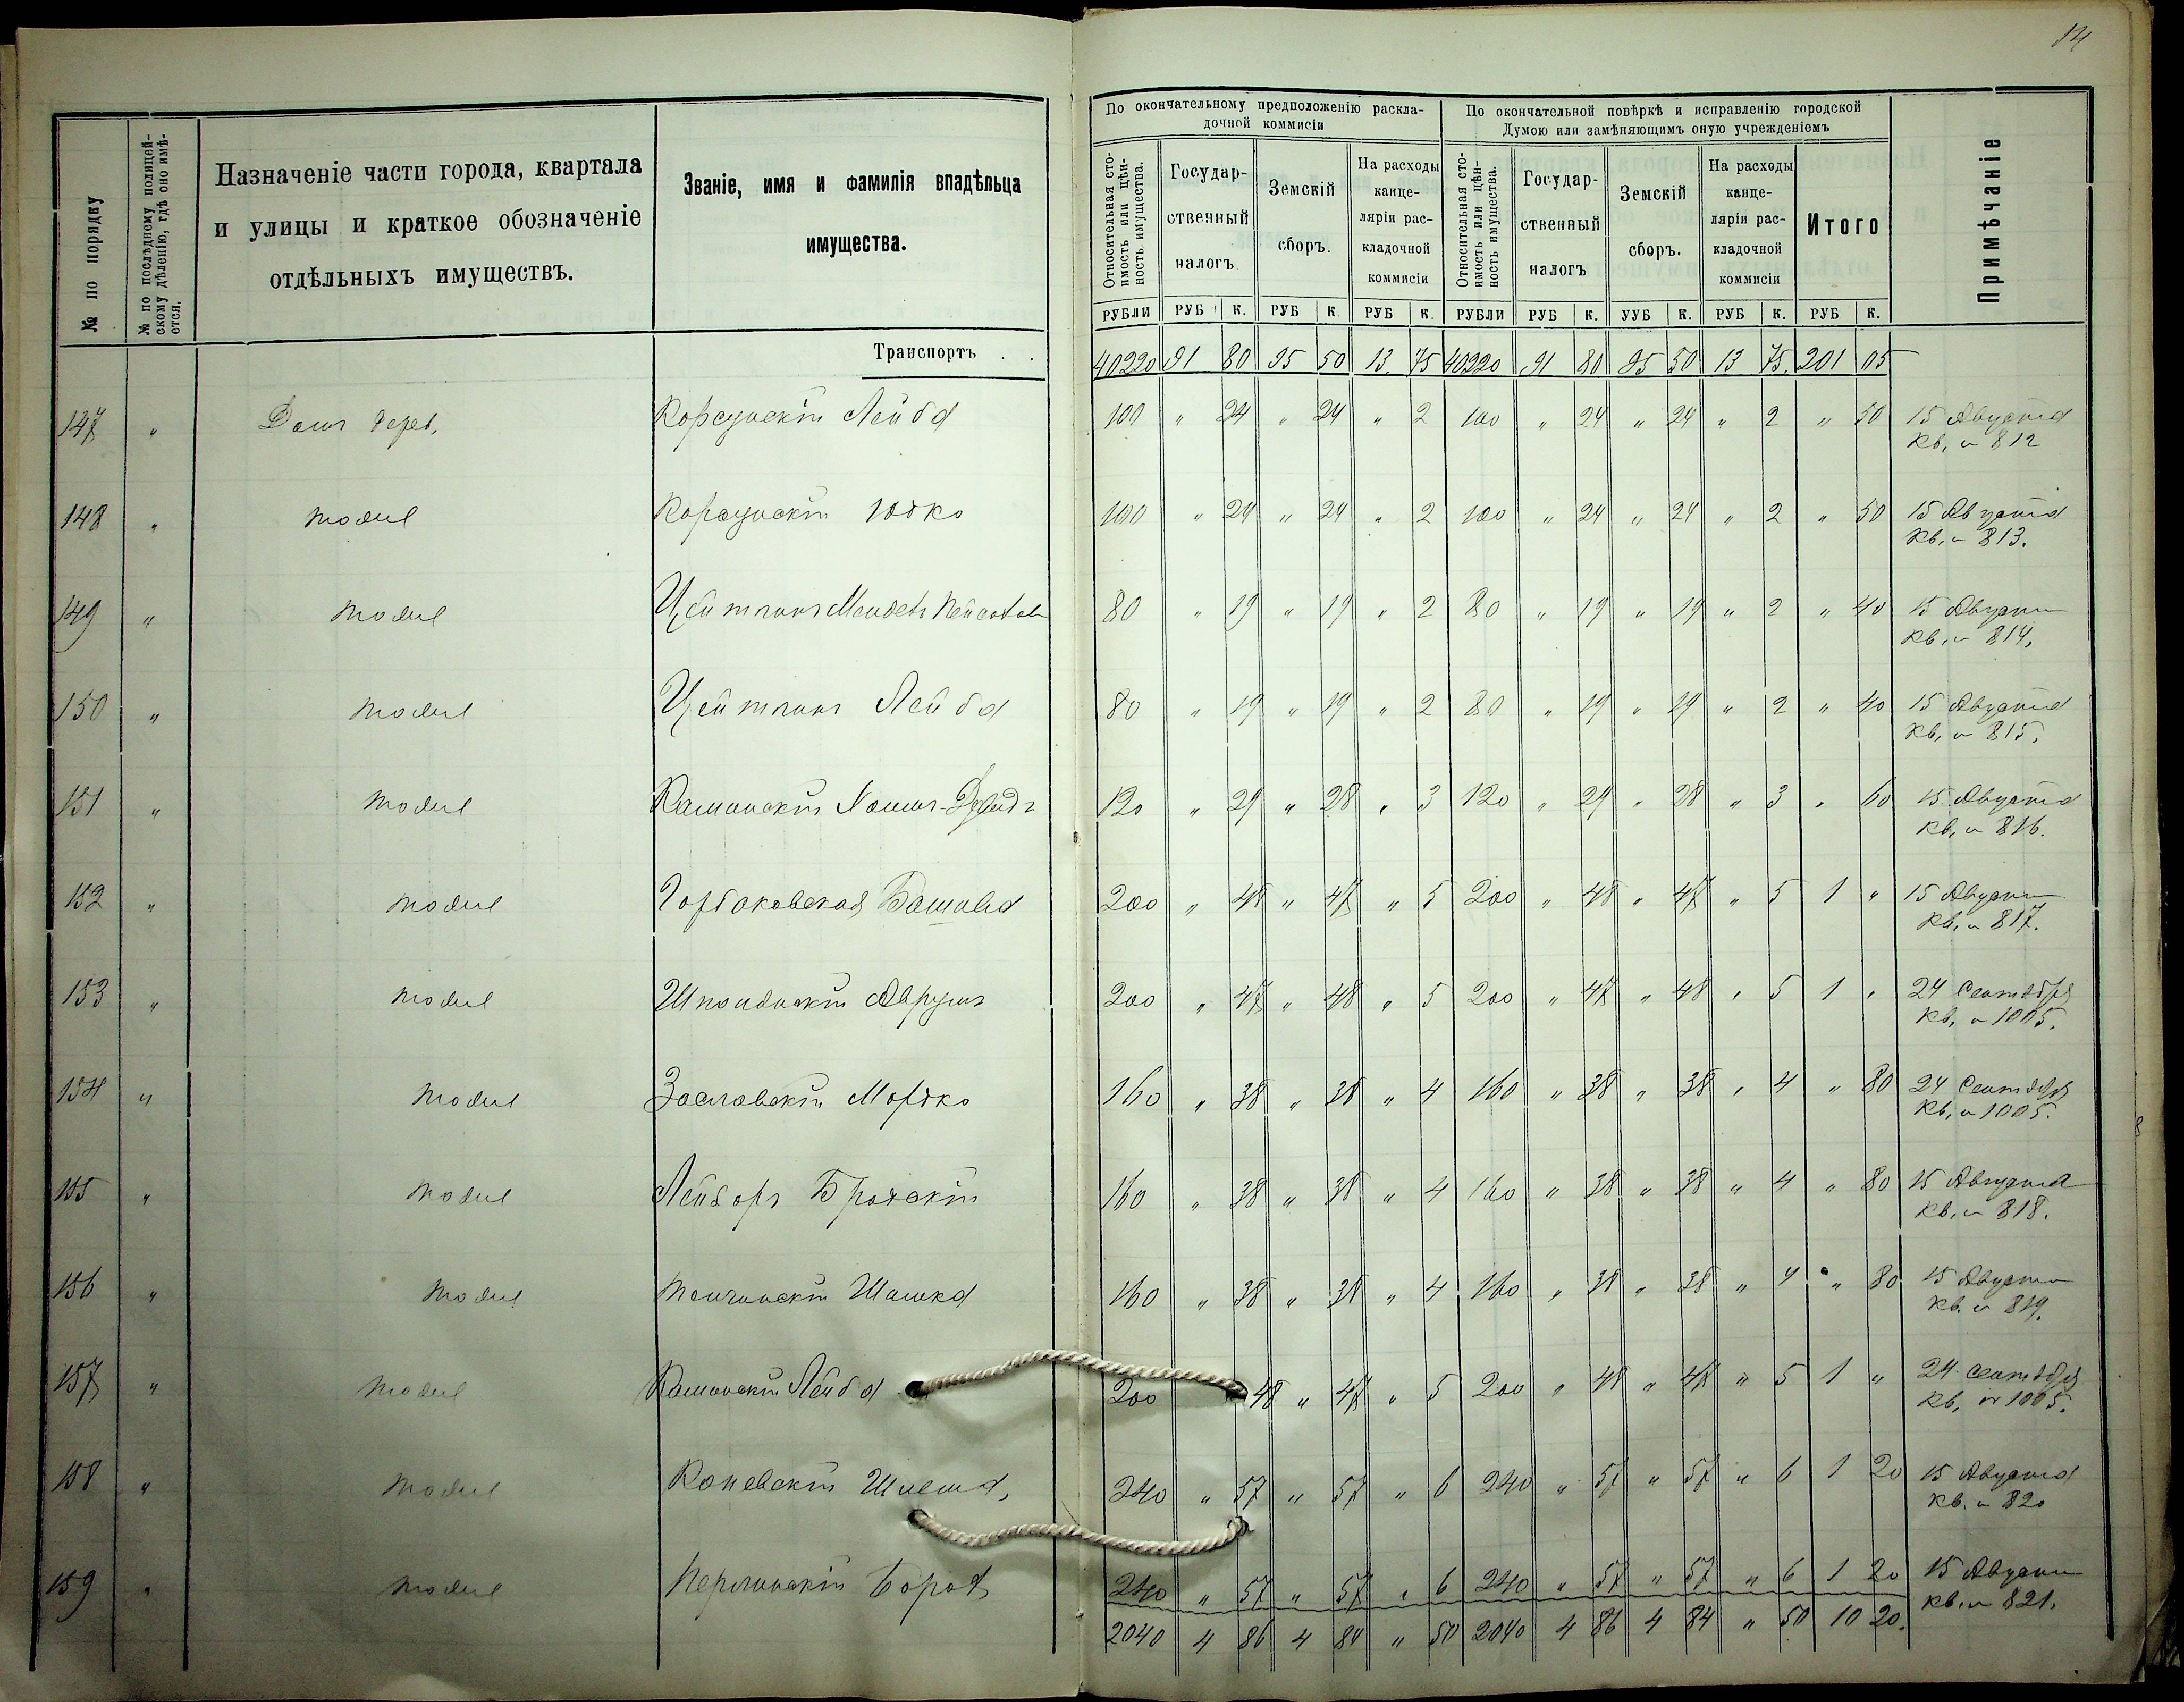 14
№ по порядку
№ по послѣдному полицей-
скому дѣленію, гдѣ оно имѣ-
ется.
Назначеніе части города, квартала
и улицы и краткое обозначеніе
отдѣльныхъ имуществъ.
Званіе, имя и фамилія владѣльца
имущества.
По окончательному предположенію раскла-
дочной коммисіи
По окончательной повѣркѣ и исправленію городской
Думою или замѣняющимъ оную учрежденіемъ
Относительная сто-
имость или цѣн-
ность имущества.
Государ-
ственный
налогъ
Земскій
сборъ.
На расходы
канце-
ляріи рас-
кладочной
коммисіи
Относительная сто-
имость или цѣн-
ность имущества.
Государ-
ственный
налогъ
Земскій
сборъ.
На расходы
канце-
ляріи рас-
кладочной
коммисіи
Итого
Примѣчаніе
РУБЛИ РУБ К. РУБ К РУБ К. РУБЛИ РУБ К. УУБ К. РУБ К. РУБ К.
Транспортъ . . 40220 91 80 95 50 13. 75 40220 91 80 95 50 13 75. 201 05
147 " Домъ дерев, Корсунскій Лейба 100 " 24 " 24 " 2 100 " 24 " 24 " 2 " 50 15 Августа
кв, № 812
148 " тоже Корсунскій Іодко 100 " 24 " 24 " 2 100 " 24 " 24 " 2 " 50 15 Августа
кв. № 813.
149 " тоже Цейтлинъ Мендель 80 " 19 " 19 " 2 80 " 19 " 19 " 2 " 40 15 Августа
кв. № 814,
150 " тоже Цейтлинъ Лейба 80 " 19 " 19 " 2 80 " 19 " 19 " 2 " 40 15 Августа
кв, № 815,
151 " тоже Камински 120 " 29 " 28 " 3 120 " 29 " 28 " 3 " 60 15 Августа
кв, № 816.
152 " тоже 200 " 48 " 47 " 5 200 " 48 " 47 " 5 1 " 15 Августа
кв, № 817.
153 " тоже 200 " 47 " 48 " 5 200 " 47 " 48 " 5 1 " 24 Сентября
кв, № 1005.
154 " тоже Заславскій Мордко 160 " 38 " 38 " 4 160 " 38 " 38 " 4 " 80 24 Сентября
кв, № 1005.
155 " тоже Лейзоръ Бродскій 160 " 38 " 38 " 4 160 " 38 " 38 " 4 " 80 15 Августа
кв. № 818.
156 " тоже 160 " 38 " 38 " 4 160 " 38 " 38 " 4 " 80 15 Августа
кв. № 819.
157 " тоже Каминскій Лейба 200 48 " 47 " 5 200 " 48 " 47 " 5 1 " 24 Сентября
кв, № 1005.
158 " тоже Каневскій Шлема, 240 " 57 " 57 " 6 240 " 57 " 57 " 6 1 20 15 Августа
кв. № 820
159 " тоже 240 " 57 " 57 " 6 240 " 57 " 57 " 6 1 20 15 Августа
кв. № 821.
2040 4 86 4 84 " 50 2040 4 86 4 84 " 50 10 20.